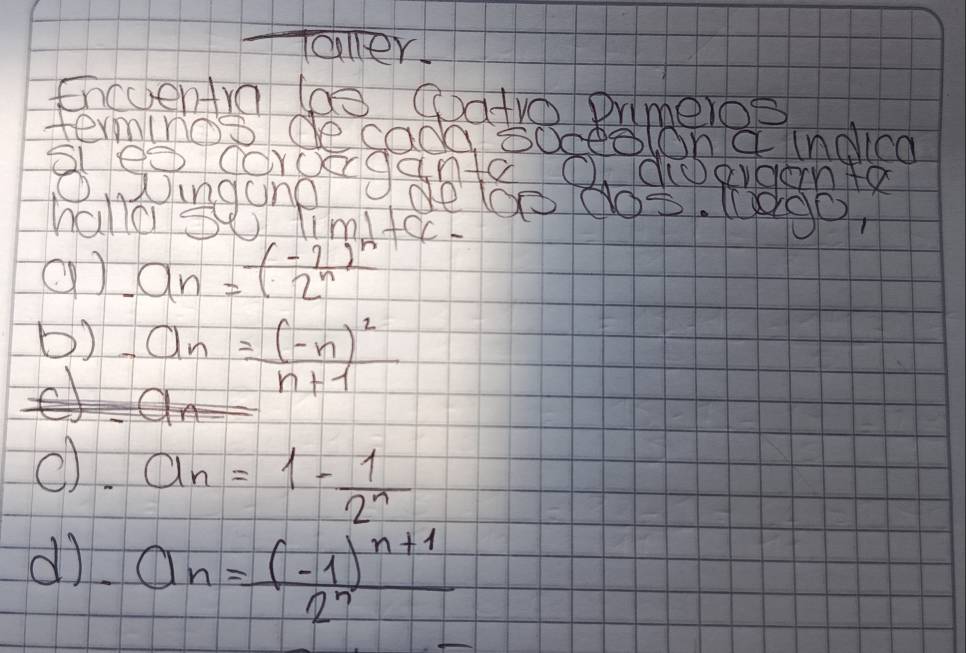 Taller.
Encuentra los cuatro primeros
terminos de cada sucesion e indica
si es convergente o divergente
o ninguno de los dos. luego,
halla su limite.
a). an = (-2)^n / 2^n
b). an = (-n)^2 / n+1
c). an
c). an = 1 - 1 / 2^n
d). an = (-1)^{n+1} / 2^n